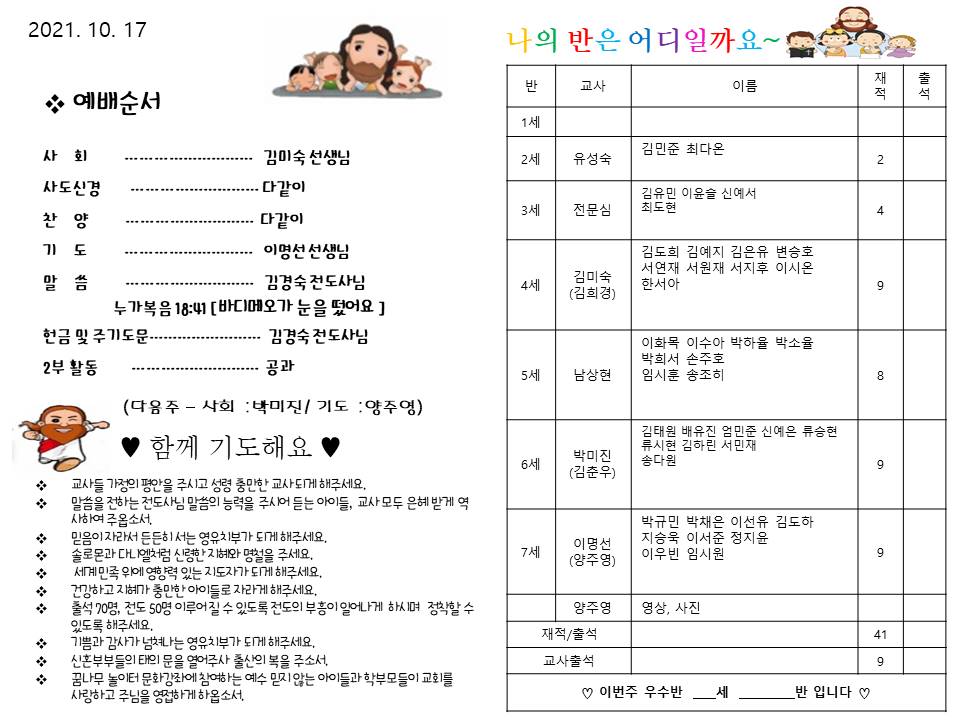 2021. 10. 17
❖ 예배순서
사 회 --------------------------- 김미숙선생님
사도신경 --------------------------- 다같이
찬 양 --------------------------- 다같이
기 도 --------------------------- 이명선선생님
말 씀 --------------------------- 김경숙전도사님
누가복음 18:41 [ 바디메오가 눈을 떴어요 ]
헌금 및 주기도문------------------------ 김경숙전도사님
2부 활동 --------------------------- 공과
(다윰주 – 사회 :박미진/ 기도 :양주영)
♥ 함께 기도해요 ♥
❖ 교사들 가정의 평안을 주시고 성령 충만한 교사 되게 해주세요.
❖ 말씀을 전하는 전도사님 말씀의 능력을 주시어 듣는 아이들, 교사 모두 은혜 받게 역
사하여 주옵소서.
❖ 믿음이 자라서 든든히 서는 영유치부가 되게 해주세요.
❖ 솔로몬과 다니엘처럼 신령한 지혜와 명철을 주세요.
❖ 세계 민족 위에 영향력 있는 지도자가 되게 해주세요.
❖ 건강하고 지혜가 충만한 아이들로 자라게 해주세요.
❖ 출석 70명, 전도 50명 이루어 질 수 있도록 전도의 부흥이 일어나게 하시며 정착할 수
있도록 해주세요.
❖ 기쁨과 감사가 넘쳐나는 영유치부가 되게 해주세요.
❖ 신혼부부들의 태의 문을 열어주사 출산의 복을 주소서.
❖ 꿈나무 놀이터 문화강좌에 참여하는 예수 믿지 않는 아이들과 학부모들이 교회를
사랑하고 주님을 영접하게 하옵소서.
나의 반은 어디일까요~
반 교사 이름 재적 출석
1세
2세 유성숙 김민준 최다온 2
3세 전문심 김유민 이윤슬 신예서
최도현 4
4세 김미숙
(김희경) 김도희 김예지 김은유 변승호
서연재 서원재 서지후 이시온
한서아 9
5세 남상현 이화목 이수아 박하율 박소율
박희서 손주호
임시훈 송조히 8
6세 박미진
(김춘우) 김태원 배유진 엄민준 신예은 류승현
류시현 김하린 서민재
송다원 9
7세 이명선
(양주영) 박규민 박채은 이선유 김도하
지승욱 이서준 정지윤
이우빈 임시원 9
양주영 영상, 사진
재적/출석 41
교사출석 9
♡ 이번주 우수반 ___세 ________반 입니다 ♡